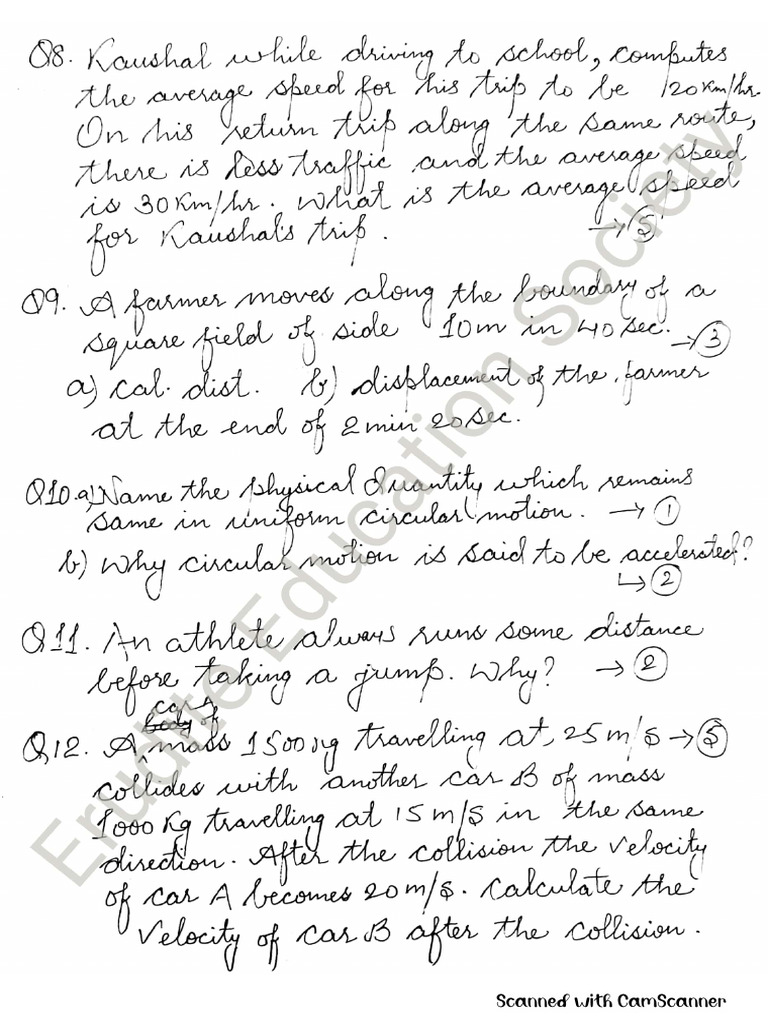 Q8. Kaushal while driving to school, computes
the average speed for his trip to be 120 km/hr.
On his return trip along the same route,
there is less traffic and the average speed
is 30 Km/hr. What is the average speed
for Kaushal's trip. → 5
Q9. A farmer moves along the boundary of a
square field of side 10m in 40 sec. → 3
a) cal. dist. b) displacement of the farmer
at the end of 2 min 20 sec.
Q10. a) Name the physical Quantity which remains
same in uniform circular motion. → 1
b) Why circular motion is said to be accelerated?
↳ 2
Q11. An athlete always runs some distance
before taking a jump. Why? → 2
car A
body of
Q12. A mass 1500 kg travelling at 25 m/s → 5
collides with another car B of mass
1000 Kg travelling at 15 m/s in the same
direction. After the collision the velocity
of car A becomes 20 m/s. Calculate the
velocity of car B after the collision.
Erudite Education Society
Scanned with CamScanner